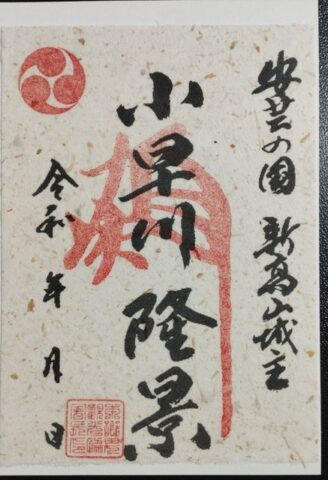 安芸の国 新高山城主
小早川隆景
令和 年 月 日